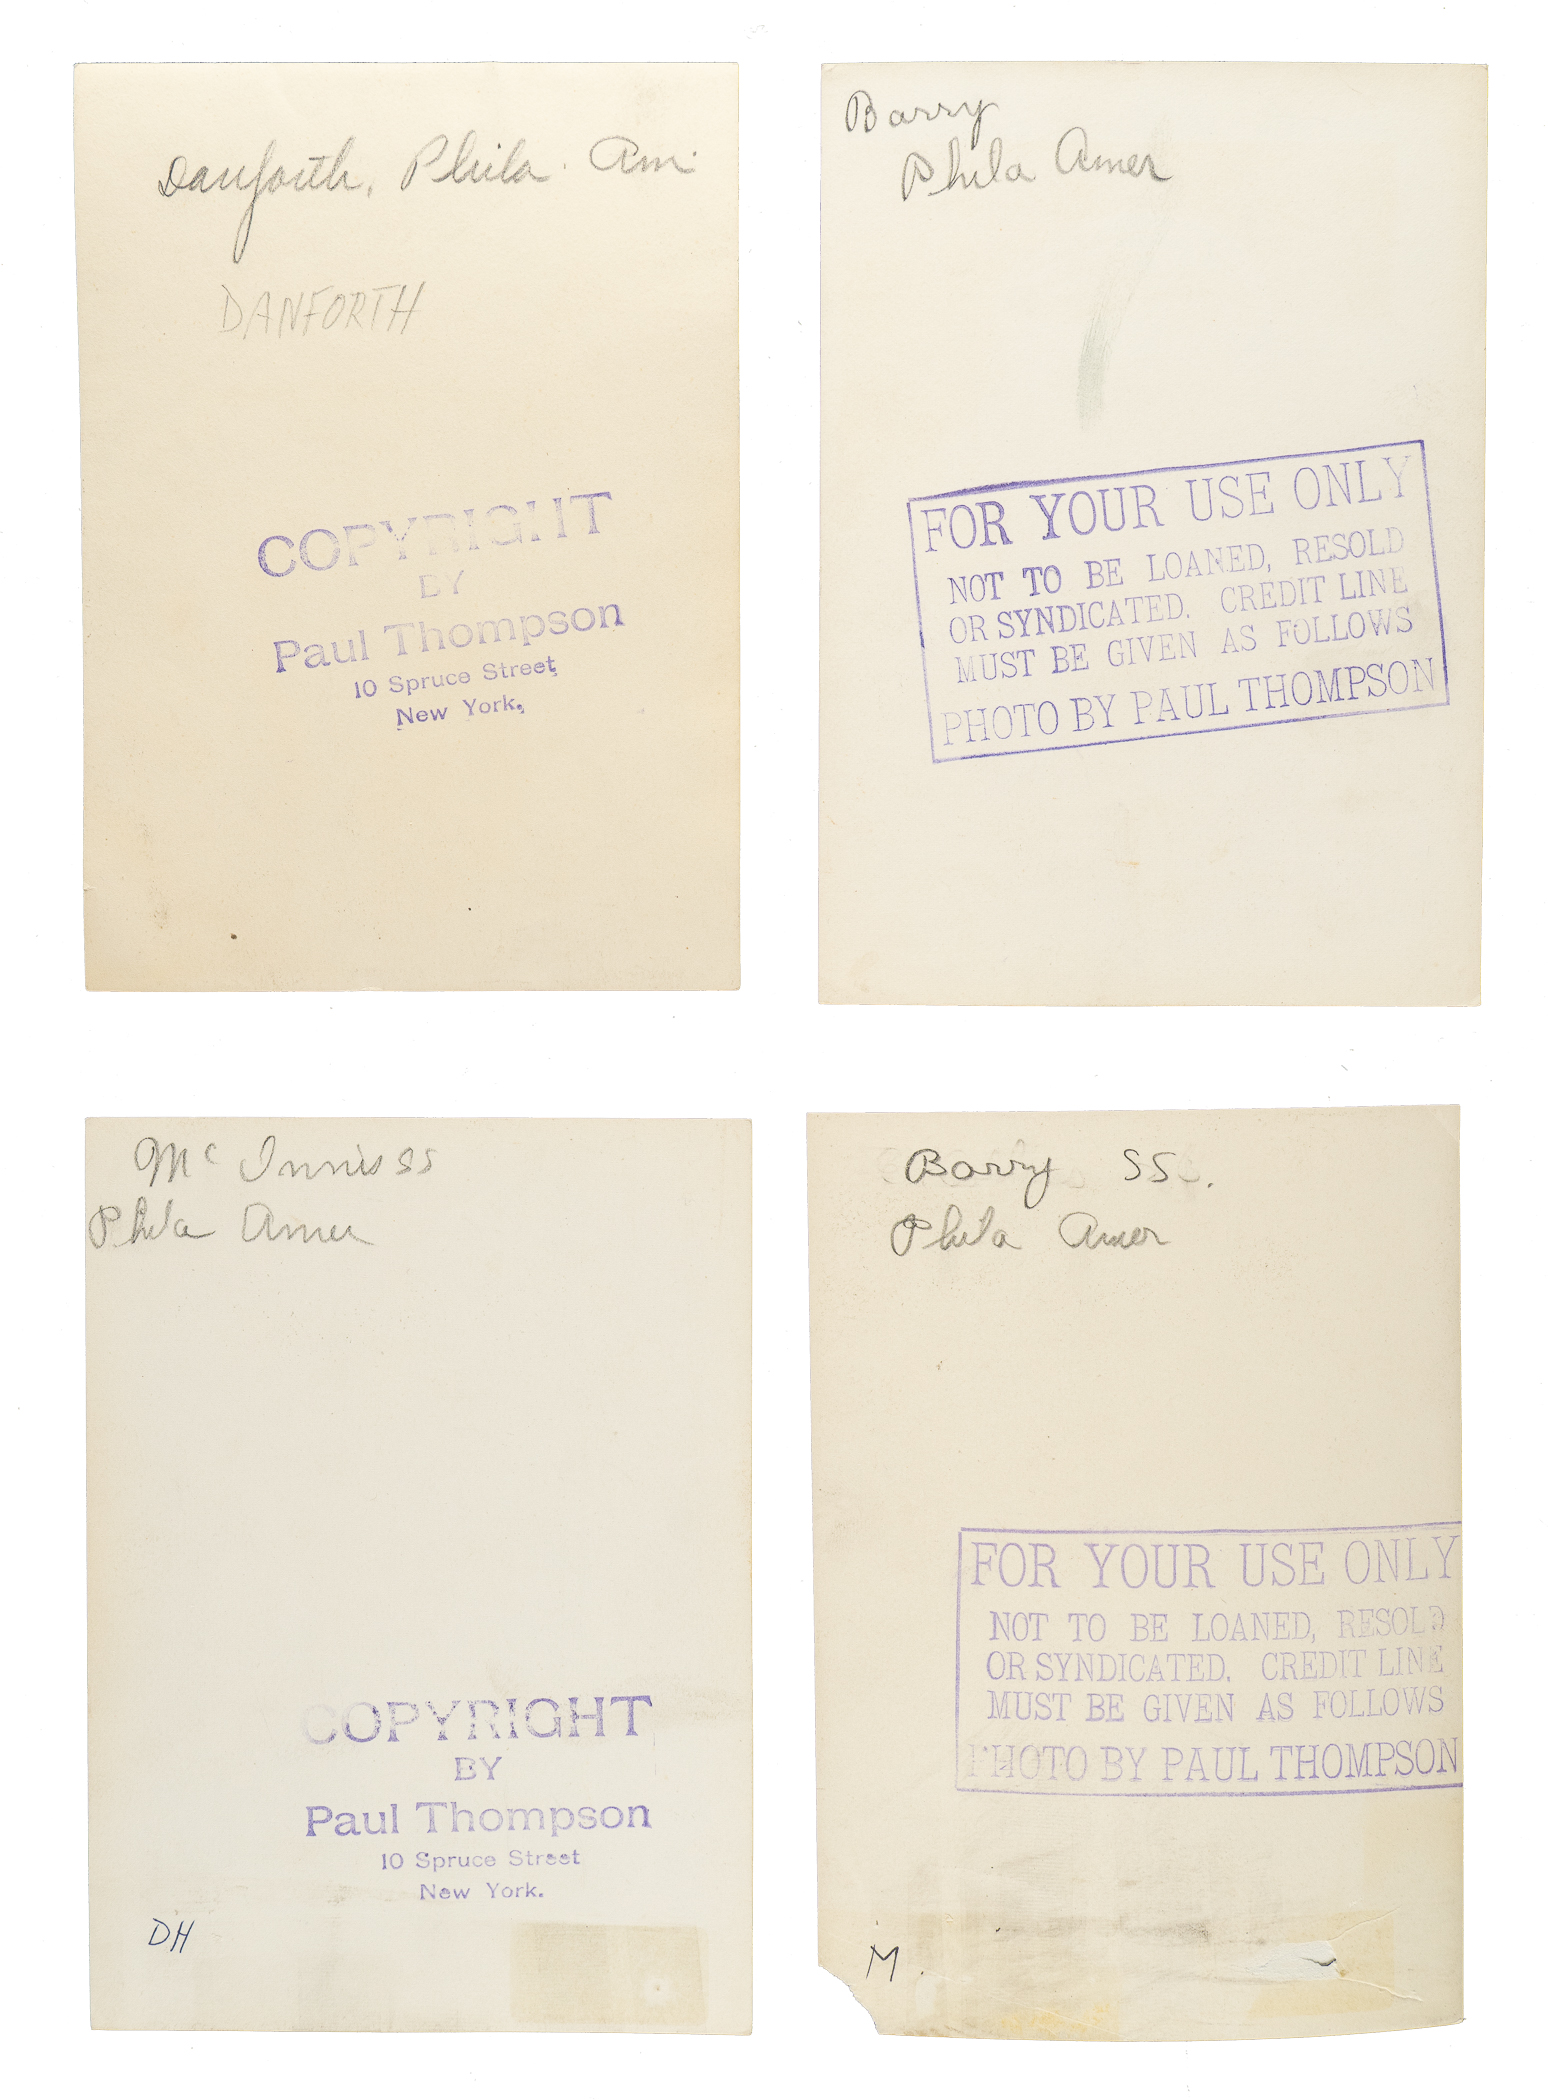 Danforth, Phila. Am.
DANFORTH
COPYRIGHT
BY
Paul Thompson
10 Spruce Street
New York.
Barry
Phila Amer
FOR YOUR USE ONLY
NOT TO BE LOANED, RESOLD
OR SYNDICATED. CREDIT LINE
MUST BE GIVEN AS FOLLOWS
PHOTO BY PAUL THOMPSON
Mc Innis SS
Phila Amer
COPYRIGHT
BY
Paul Thompson
10 Spruce Street
New York.
DH
Barry SS.
Phila Amer
FOR YOUR USE ONLY
NOT TO BE LOANED, RESOLD
OR SYNDICATED. CREDIT LINE
MUST BE GIVEN AS FOLLOWS
PHOTO BY PAUL THOMPSON
M.